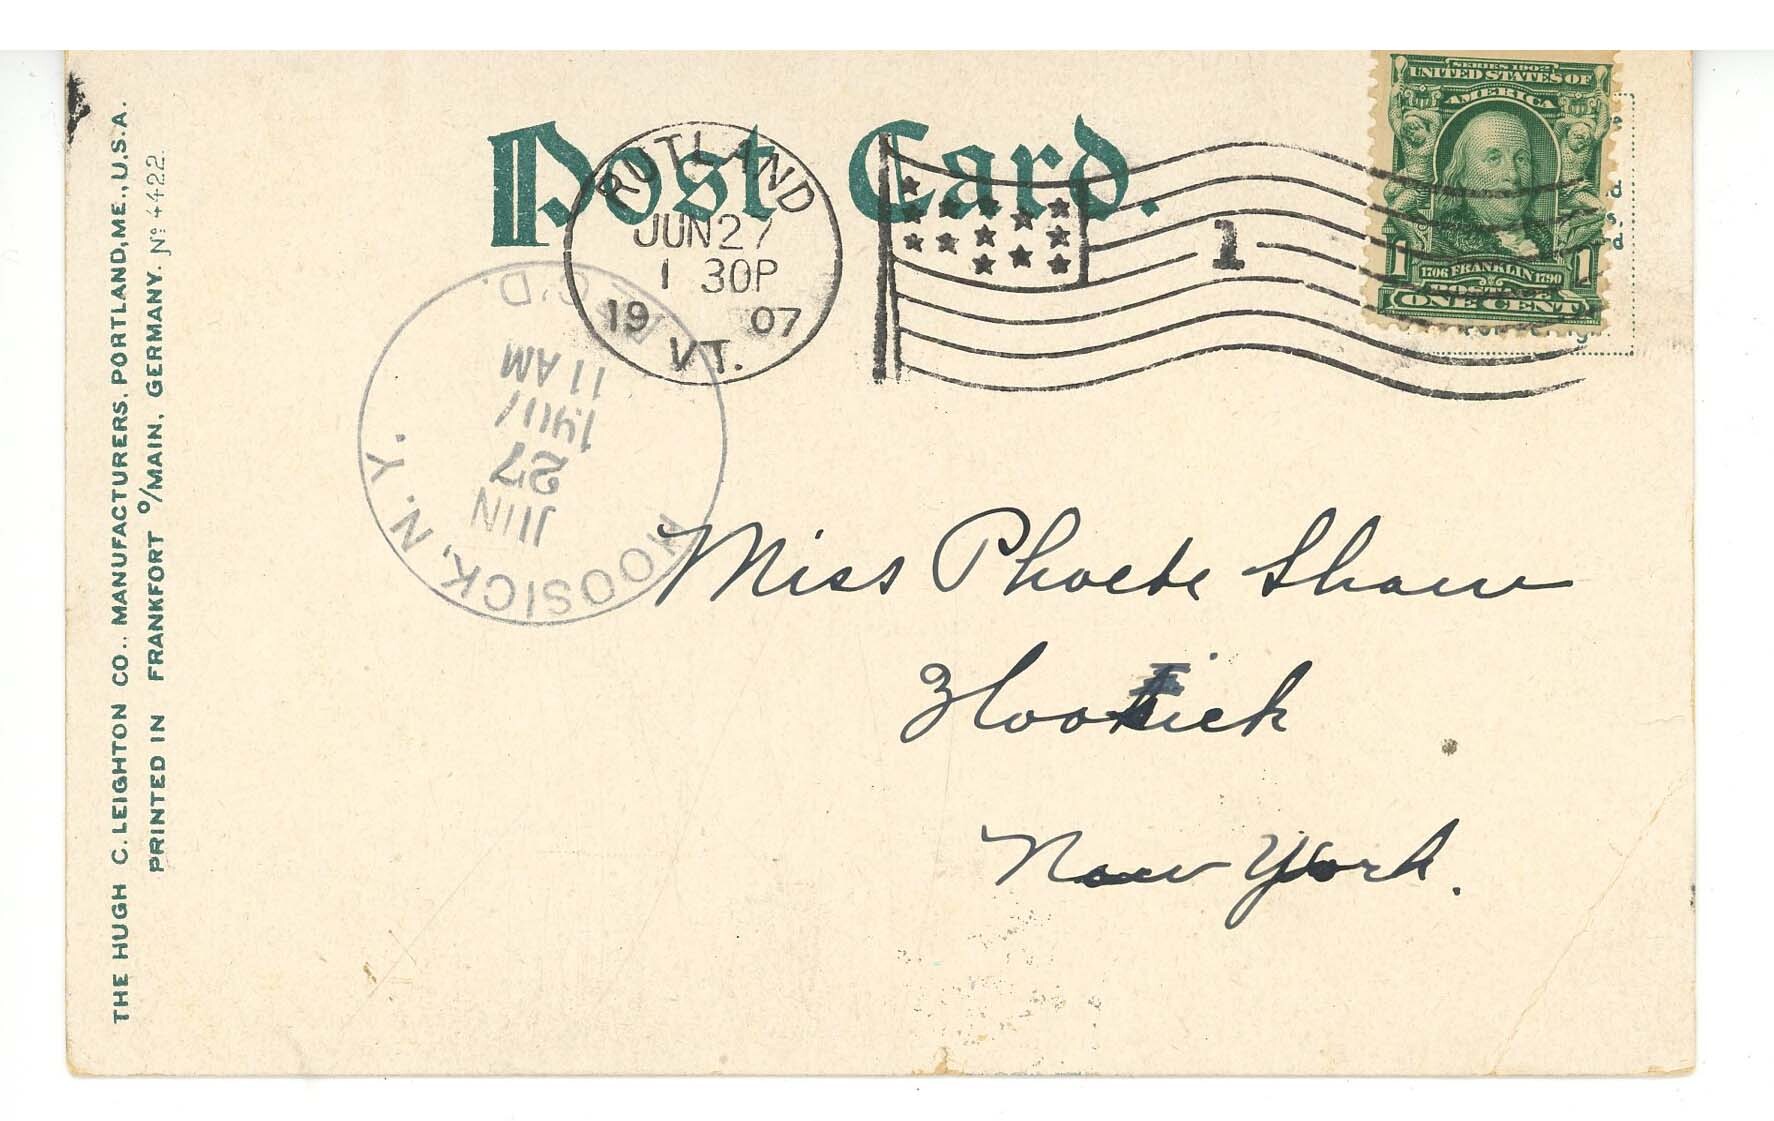 THE HUGH C. LEIGHTON CO., MANUFACTURERS, PORTLAND, ME., U.S.A.
PRINTED IN FRANKFORT o/MAIN, GERMANY. No 4422.
Post Card.
RUTLAND
JUN 27
1 30P
19 07
VT.
1
SERIES 1902
UNITED STATES OF
AMERICA
1 1706 FRANKLIN 1790 1
POSTAGE
ONE CENT
HOOSICK, N.Y.
JUN
27
1907
11 AM
REC'D.
Miss Phoebe Shaw
Hoosick
New York.